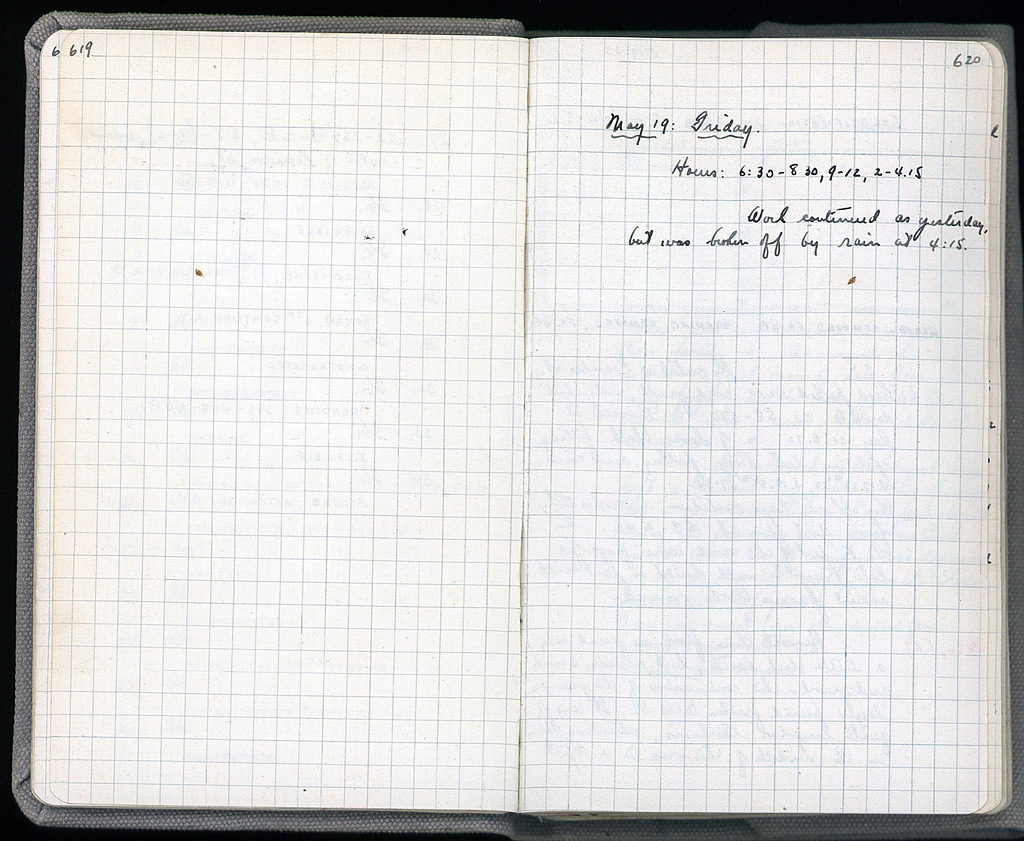 6 619
620
May 19: Friday.
Hours: 6:30-8 30, 9-12, 2-4.15
Work continued as yesterday,
but was broken off by rain at 4:15.